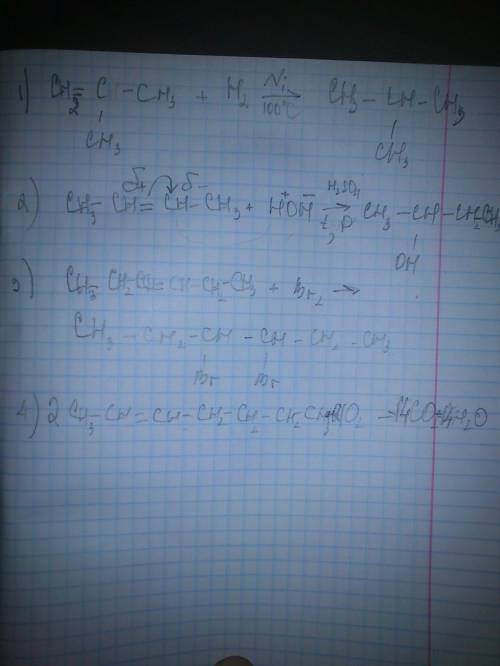 1) CH2 = C - CH3 + H2 Ni 100°C → CH3 - CH - CH3
CH3 CH3
2) CH3 - CH = CH - CH3 + HOH H2SO4 t, p → CH3 - CH - CH2CH3
δ+ δ- + -
OH
3) CH3 CH2 - CH = CH - CH2 - CH3 + Br2 →
CH3 - CH2 - CH - CH - CH2 - CH3
Br Br
4) 2 CH3 - CH = CH - CH2 - CH2 - CH2 CH3 → 14CO2 + 14H2O